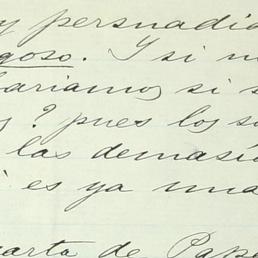 y persuadia
goso. Y si n
bariamos si s
? pues los so
las demasía
es ya una
arta de Pap